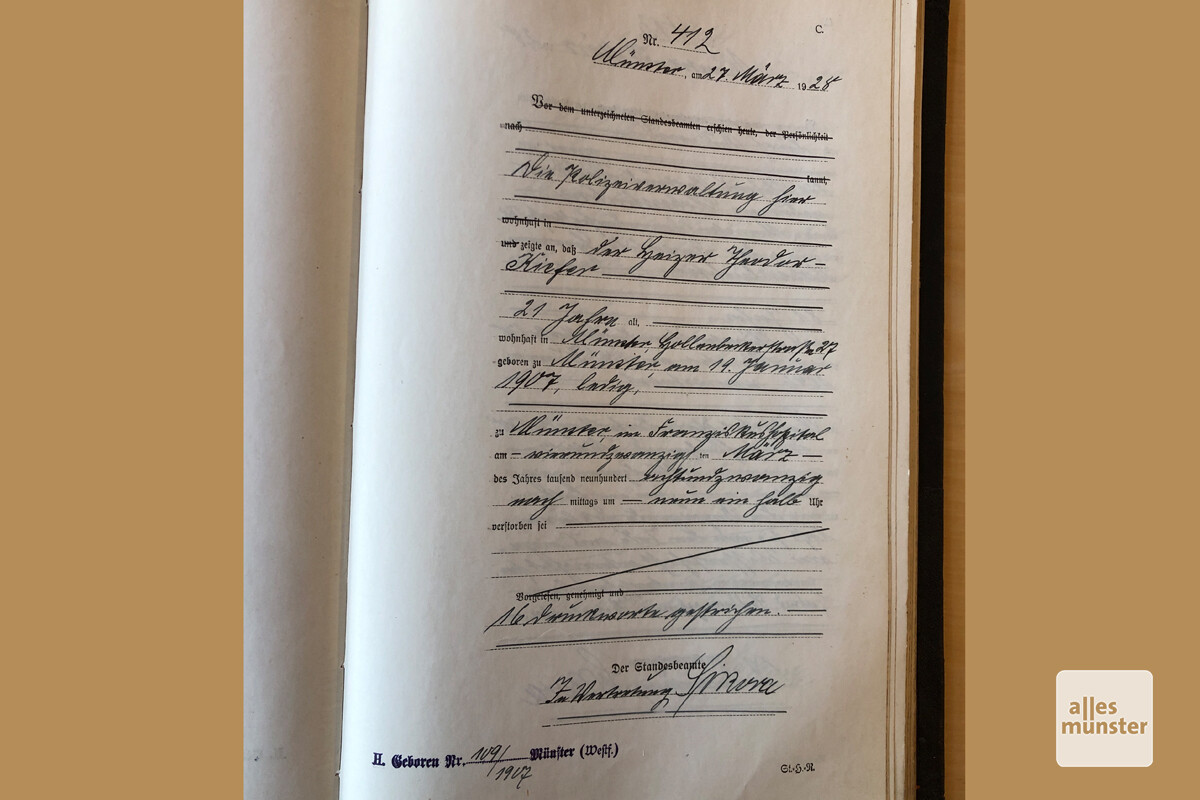 C.
Nr. 412
Münster, am 27. März 1928
Vor dem unterzeichneten Standesbeamten erschien heute, der Persönlichkeit
nach
kannt,
Die Polizeiverwaltung hier
wohnhaft in
und zeigte an, daß der Heizer Theodor
Kiefer
21 Jahre alt,
wohnhaft in Münster, Hollenbeckerstraße 27
geboren zu Münster, am 19. Januar
1907, ledig,
zu Münster im Franziskushospital
am vierundzwanzigsten März
des Jahres tausend neunhundert achtundzwanzig
nach mittags um neun ein halb Uhr
verstorben sei
Vorgelesen, genehmigt und
16 Druckworte gestrichen.
Der Standesbeamte
In Vertretung
H. Geboren Nr. 109/1907 Münster (Westf.)
St.-H.-R.
alles
münster